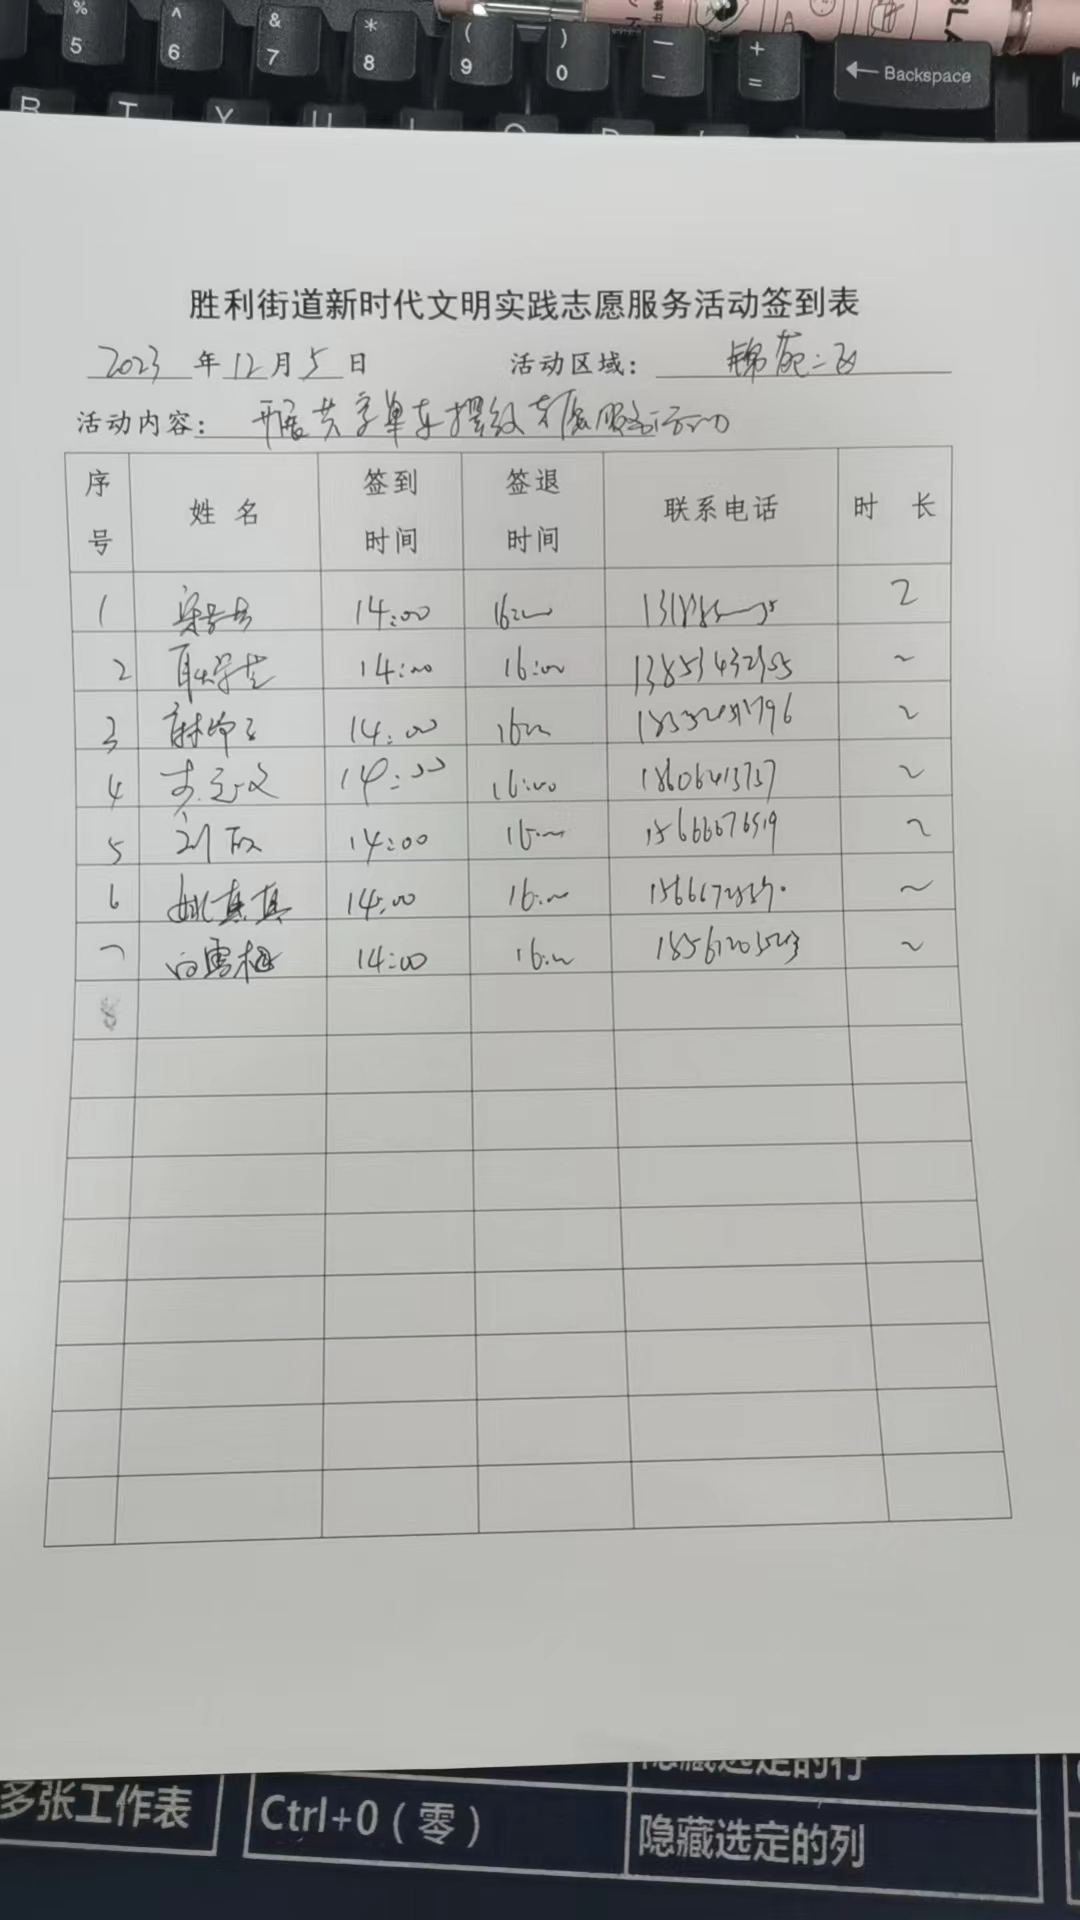 % 5 ^ 6 & 7 * 8 ( 9 ) 0 — - + = Backspace
R T Y U
胜利街道新时代文明实践志愿服务活动签到表
2023 年 12 月 5 日 活动区域： 锦苑二区
活动内容： 开展共享单车摆放志愿服务活动
序号 姓名 签到时间 签退时间 联系电话 时长
1 14:00 2
2 14:00 16:00 2
3 14:00 2
4 14:00 16:00 18606413737 2
5 刘 14:00 16:00 15666676519 2
6 姚真真 14:00 16:00 2
7 白雪梅 14:00 16:00 18561203523 2
8
隐藏选定的行
多张工作表 Ctrl+0（零） 隐藏选定的列